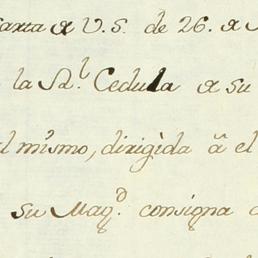 carta a V.S. de 26. a
la Rl. Cedula a su
al mismo, dirigida â el
su Magd. consigna